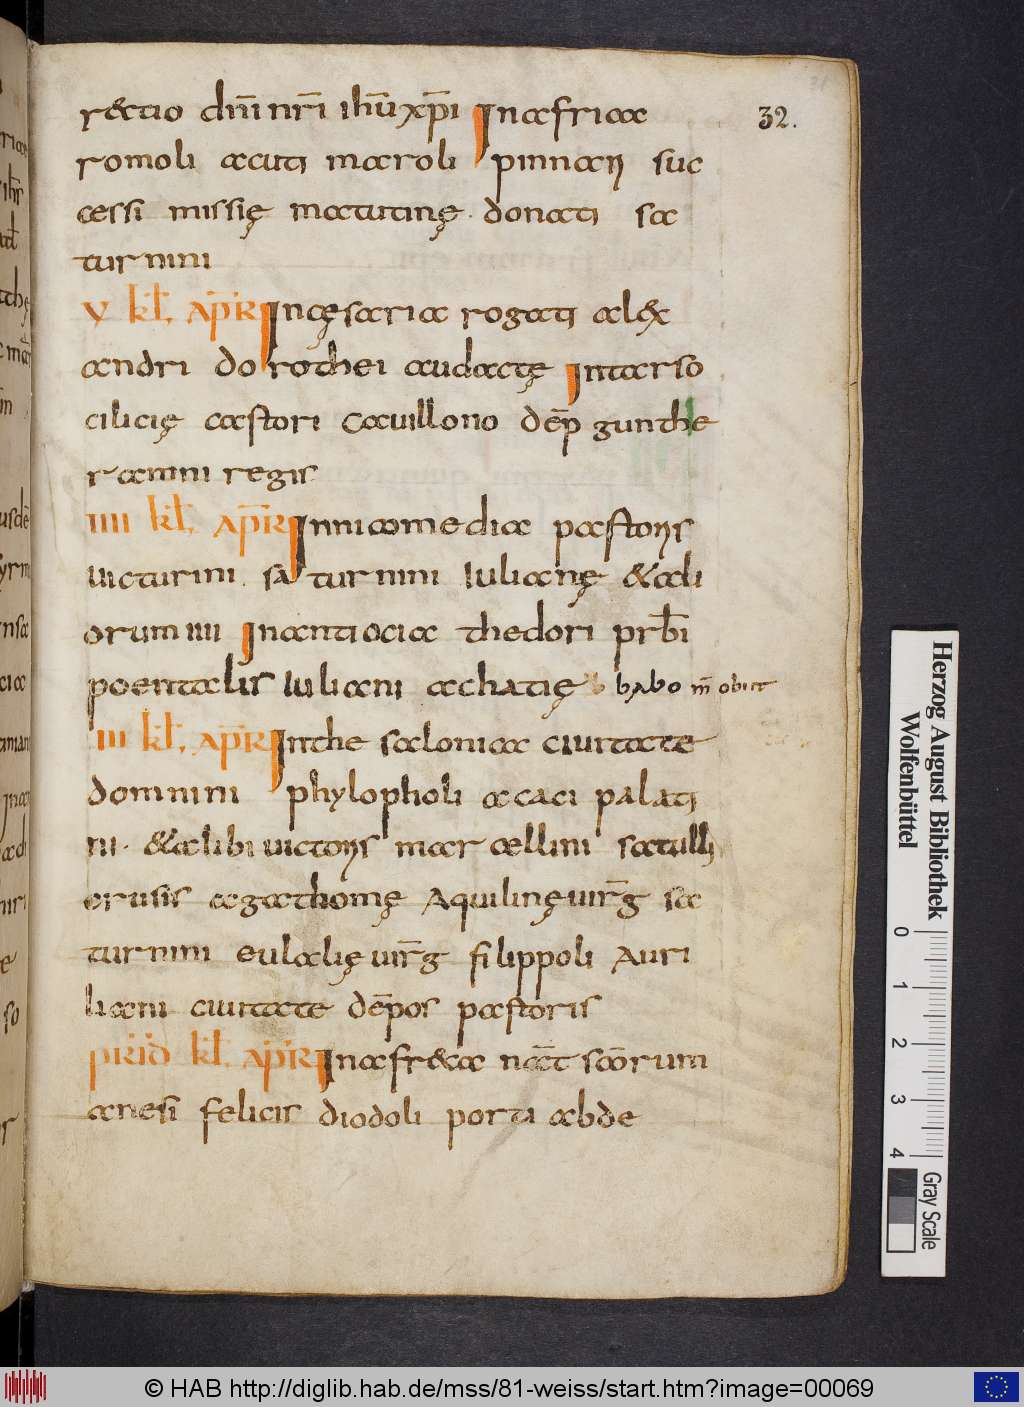 r&tio dn̄i nr̄i ihū xp̄i Inafrica
romoli acuti maroli pinnarii suc
cessi missię matutinę. donati sa
turnini
V kł. APR Incęsaria rogati alex
andri dorothei audactę Intarso
cilicię castori Cauillono dep̄ gunthe
ramni regis
IIII kł. APR Innicomedia pastoris
uicturini. saturnini Iulianę &ali
orum IIII Inantiocia thedori prb̄i
poentalis Iuliani achatię babo m̄ obiit
III kł. APR Inthesalonica ciuitate
domnini phylopholi acaci palati
ni. &alibi uictoris marcellini satulli
erusis agathomę Aquilinę uirḡ sa
turnini eulalię uirḡ filippoli Auri
liani ciuitate dep̄os pastoris
PRID kł. APR Inafr&ca nat̄ scōrum
anesi felicis diodoli porti abde
32.
Herzog August Bibliothek
Wolfenbüttel
0 1 2 3 4
Gray Scale
© HAB http://diglib.hab.de/mss/81-weiss/start.htm?image=00069